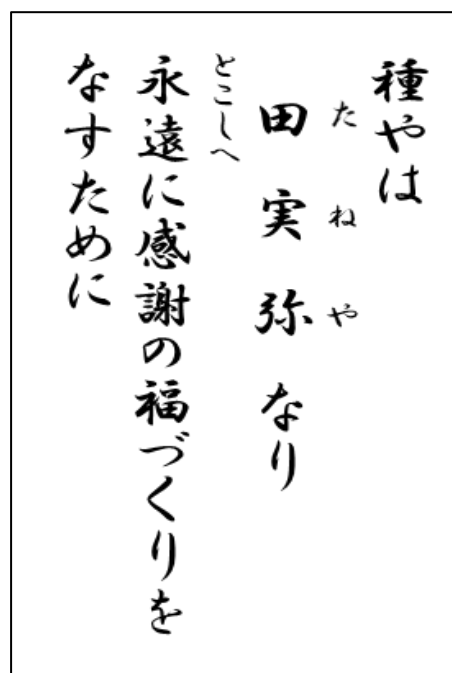 種やは
たねや
田実弥なり
とこしへ
永遠に感謝の福づくりを
なすために